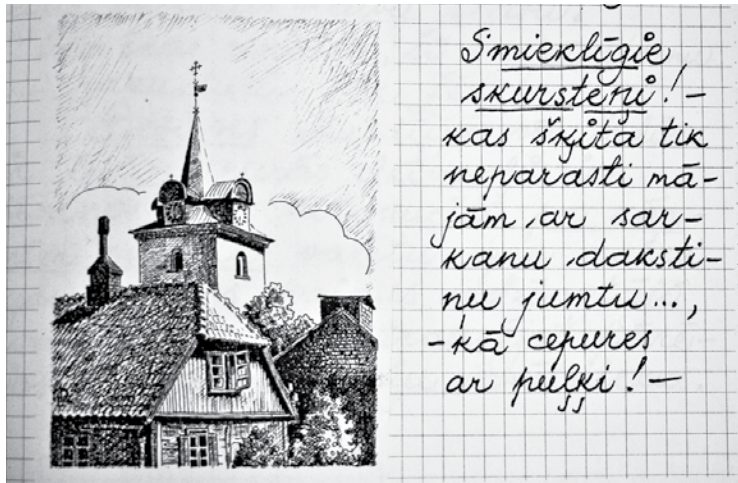 Smieklīgie
skursteņi! –
kas šķita tik
neparasti mā-
jām ar sar-
kanu daksti-
ņu jumtu...,
– kā cepures
ar puļķi! –